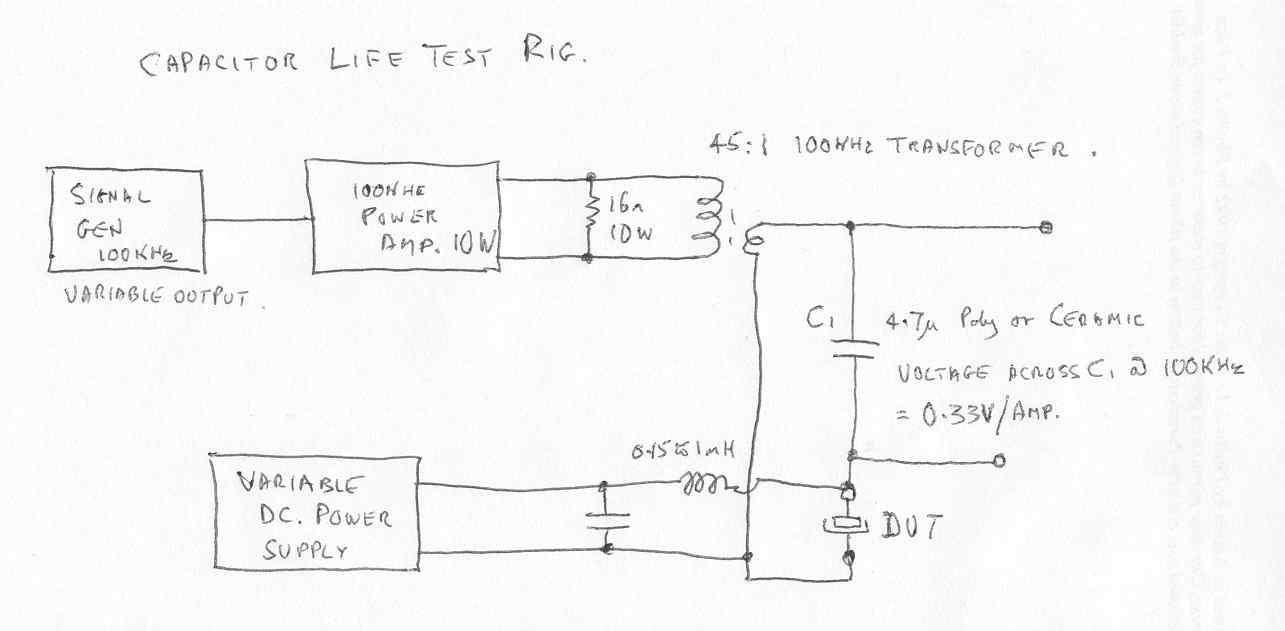 CAPACITOR LIFE TEST RIG.
45:1 100KHz TRANSFORMER.
SIGNAL
GEN
100KHz
VARIABLE OUTPUT.
100KHz
POWER
AMP. 10W
16Ω
10W
C1
4.7µ Poly or CERAMIC
VOLTAGE ACROSS C1 @ 100KHz
= 0.33V/AMP.
VARIABLE
DC. POWER
SUPPLY
1mH
DUT